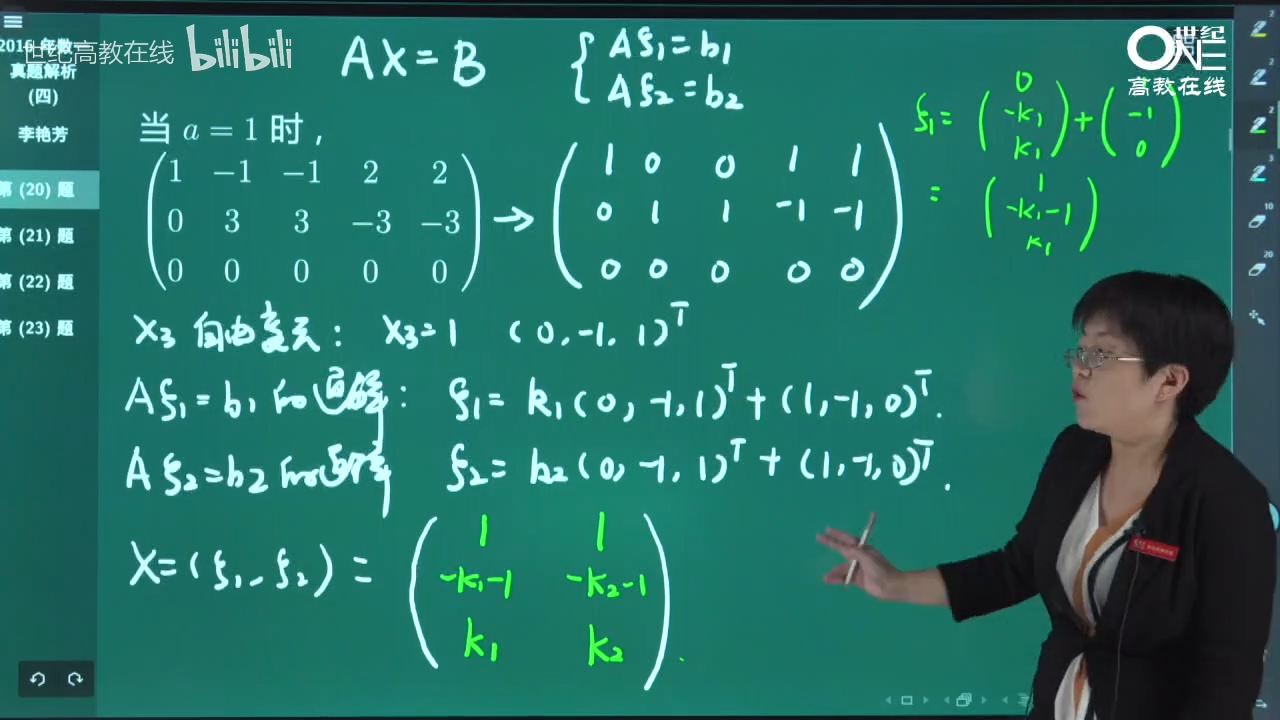 2016年数一
真题解析
(四)
李艳芳
第 (20) 题
第 (21) 题
第 (22) 题
第 (23) 题
世纪高教在线 bilibili
世纪
ONE
高教在线
AX=B
{ Aξ₁=b₁
Aξ₂=b₂
当 a = 1 时,
( 1 −1 −1 2 2 )
( 0 3 3 −3 −3 )
( 0 0 0 0 0 )
→
( 1 0 0 1 1 )
( 0 1 1 -1 -1 )
( 0 0 0 0 0 )
ξ₁= ( 0 -k₁ k₁ ) + ( -1 0 )
= ( 1 -k₁-1 k₁ )
x₃ 自由变元: x₃=1 (0,-1,1)ᵀ
Aξ₁=b₁ 的通解: ξ₁= k₁(0,-1,1)ᵀ+(1,-1,0)ᵀ.
Aξ₂=b₂ 的通解 ξ₂= k₂(0,-1,1)ᵀ+(1,-1,0)ᵀ.
X=(ξ₁, ξ₂) =
( 1 1 )
( -k₁-1 -k₂-1 )
( k₁ k₂ ).
2
2
2
3
10
20